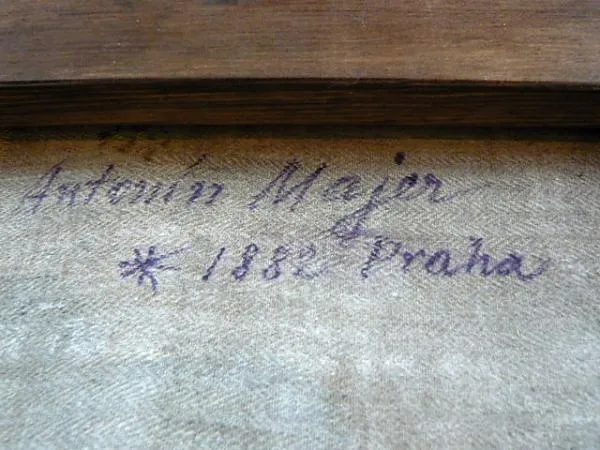 Antonín Majer
* 1882 Praha